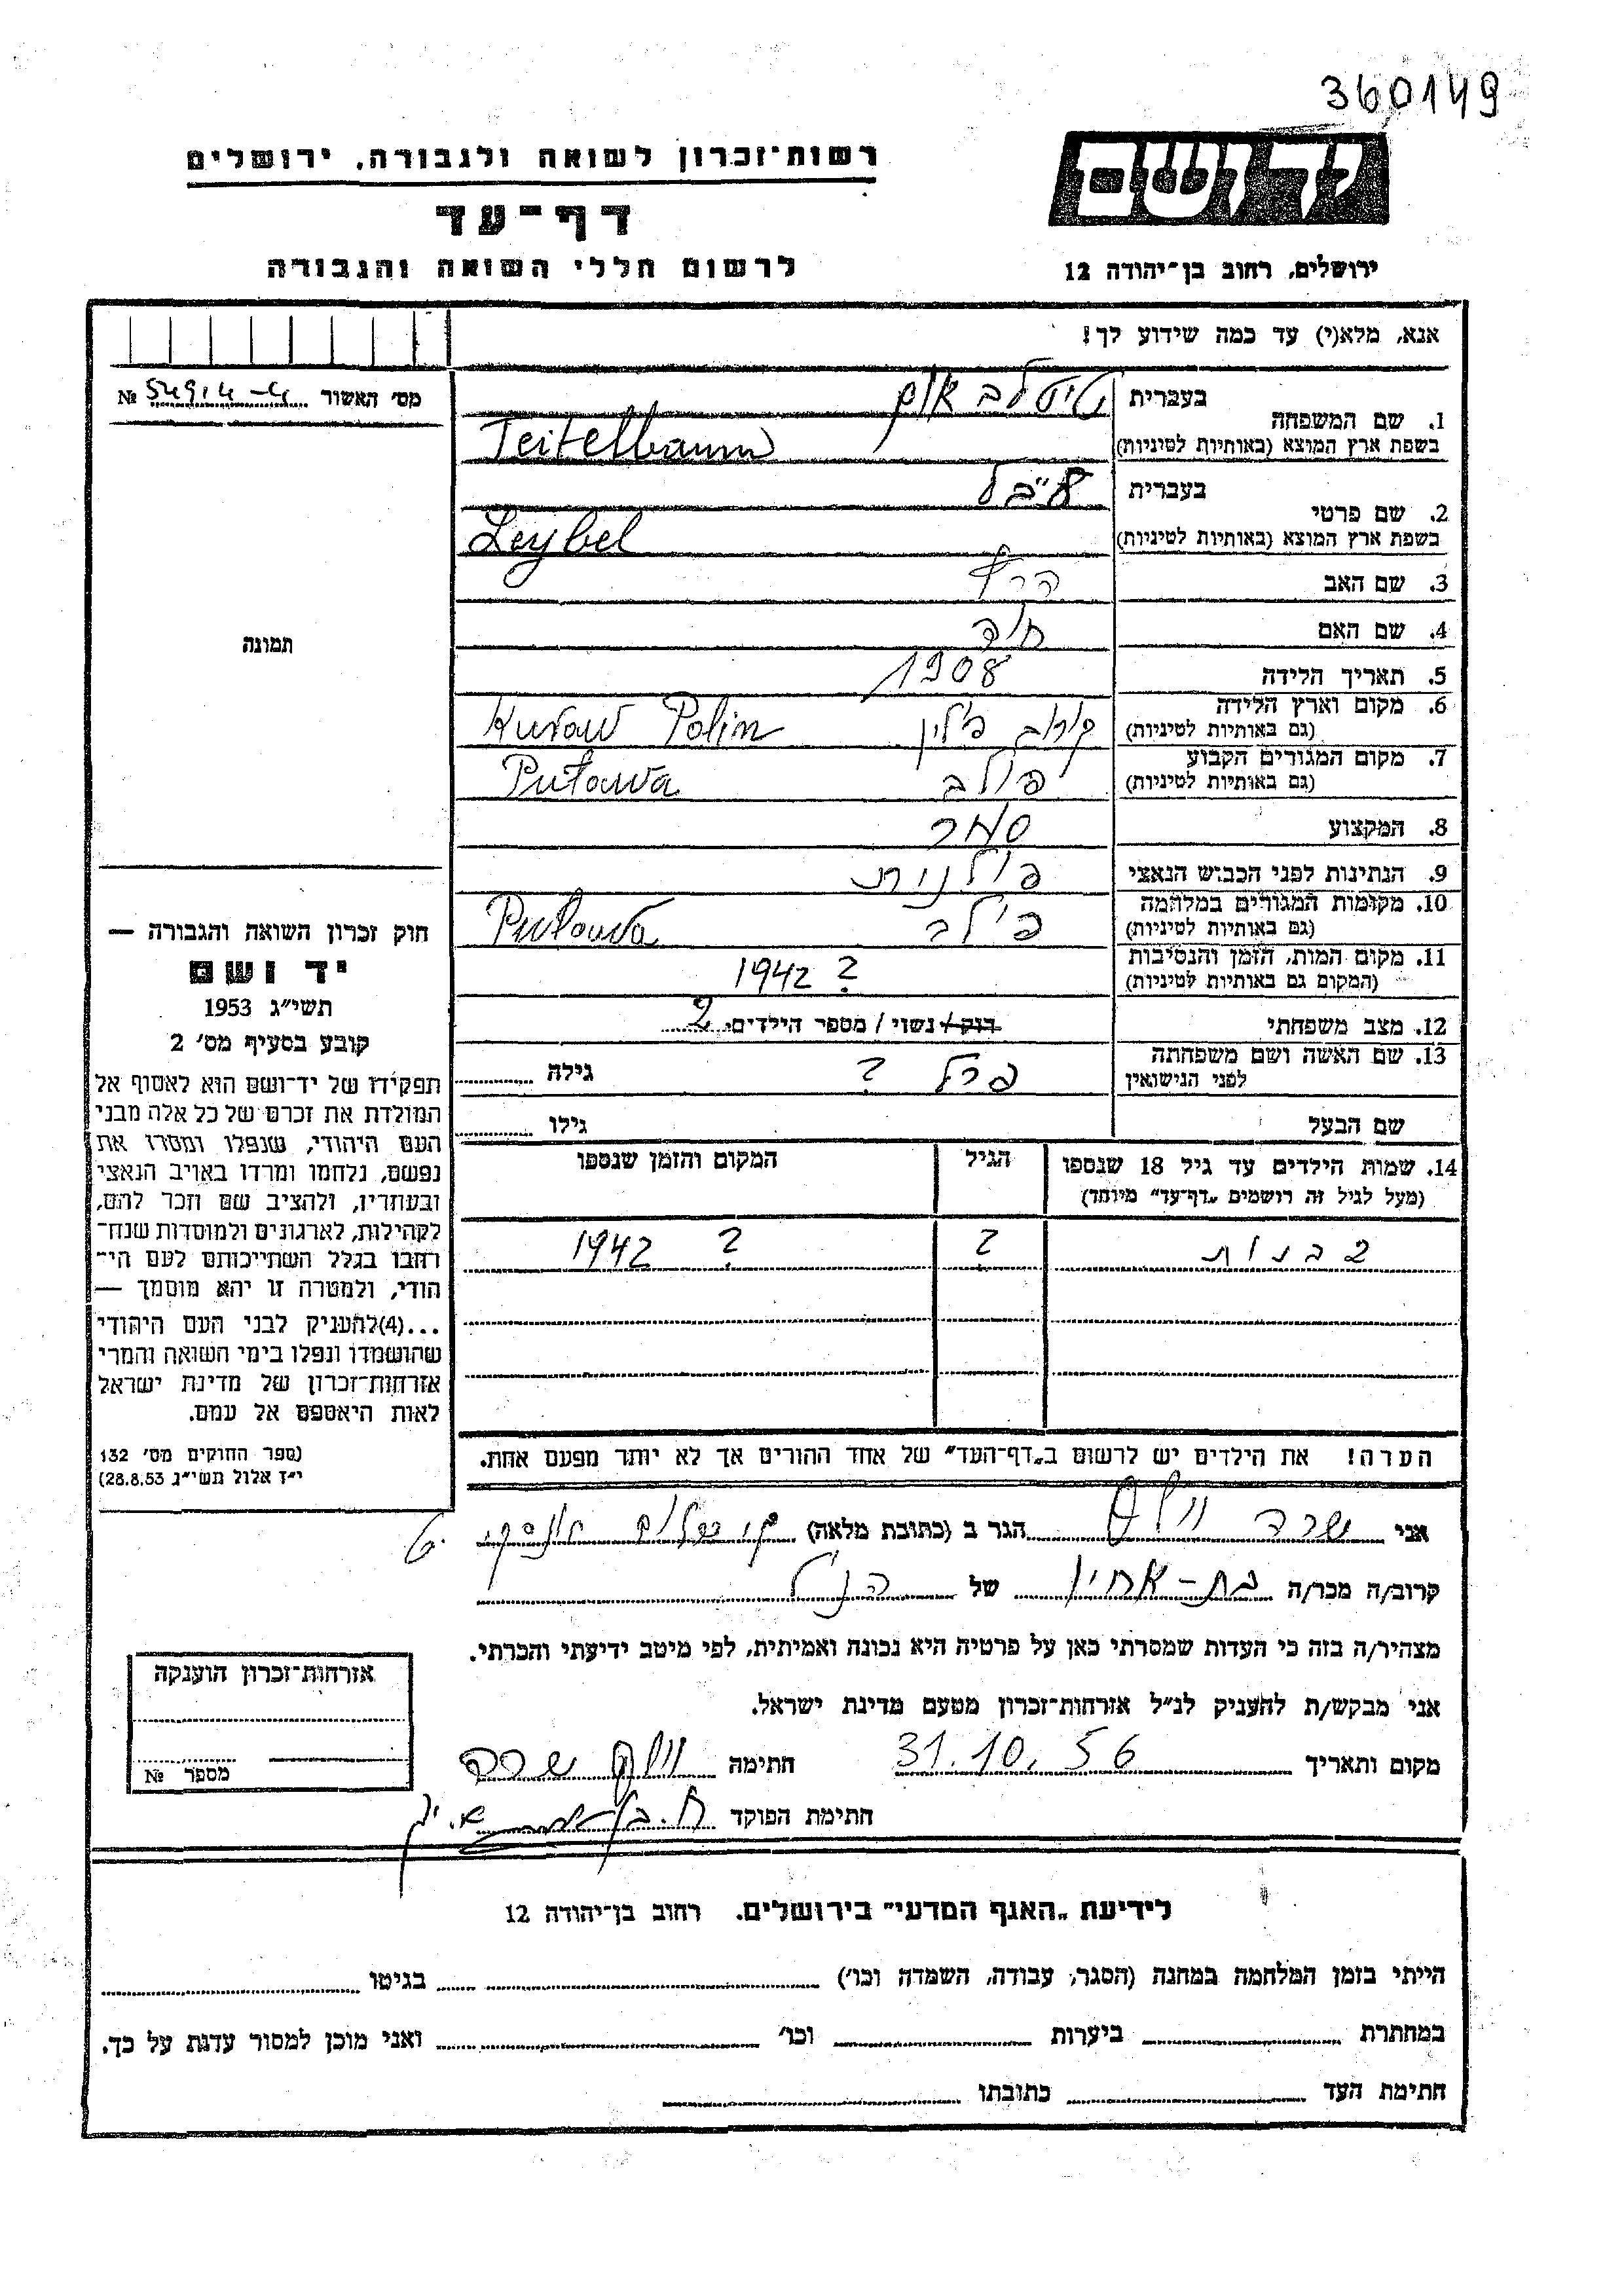 360149
יד ושם
רשות־זכרון לשואה ולגבורה, ירושלים
דף־עד
לרשום חללי השואה והגבורה
ירושלים, רחוב בן־יהודה 12
אנא, מלא(י) עד כמה שידוע לך!
מס׳ האשור № 549.4-4
1. שם המשפחה
בעברית טיטלבאום
בשפת ארץ המוצא (באותיות לטיניות) Teitelbaum
2. שם פרטי
בעברית לייבל
בשפת ארץ המוצא (באותיות לטיניות) Leybel
3. שם האב הרץ
4. שם האם חוה
5. תאריך הלידה 1908
6. מקום וארץ הלידה קורוב פולין Kurow Polin
(גם באותיות לטיניות)
7. מקום המגורים הקבוע פולב Puława
(גם באותיות לטיניות)
8. המקצוע סוחר
9. הנתינות לפני הכבוש הנאצי פולנית
10. מקומות המגורים במלחמה פולב Puława
(גם באותיות לטיניות)
11. מקום המות, הזמן והנסיבות ? 1942
(המקום גם באותיות לטיניות)
12. מצב משפחתי רוק / נשוי / מספר הילדים 2
13. שם האשה ושם משפחתה פרל ? גילה
לפני הנישואין
שם הבעל גילו
14. שמות הילדים עד גיל 18 שנספו הגיל המקום והזמן שנספו
(מעל לגיל זה רושמים „דף־עד״ מיוחד)
2 בנות ? ? 1942
הערה! את הילדים יש לרשום ב„דף־העד״ של אחד ההורים אך לא יותר מפעם אחת.
תמונה
חוק זכרון השואה והגבורה —
יד ושם
תשי״ג 1953
קובע בסעיף מס׳ 2
תפקידו של יד־ושם הוא לאסוף אל
המולדת את זכרם של כל אלה מבני
העם היהודי, שנפלו ומסרו את
נפשם, נלחמו ומרדו באויב הנאצי
ובעוזריו, ולהציב שם וזכר להם,
לקהילות, לארגונים ולמוסדות שנח־
רחבו בגלל השתייכותם לעם הי־
הודי, ולמטרה זו יהא מוסמך —
...(4)להעניק לבני העם היהודי
שהושמדו ונפלו בימי השואה והמרי
אזרחות־זכרון של מדינת ישראל
לאות היאספם אל עמם.
(ספר החוקים מס׳ 132
י״ז אלול תשי״ג 28.8.53)
אני שרה הגר ב (כתובת מלאה)
קרוב/ה מכר/ה בת-אחיו של הנ״ל
מצהיר/ה בזה כי העדות שמסרתי כאן על פרטיה היא נכונה ואמיתית, לפי מיטב ידיעתי והכרתי.
אני מבקש/ת להעניק לנ״ל אזרחות־זכרון מטעם מדינת ישראל.
מקום ותאריך 31.10.56 חתימה שרה
חתימת הפוקד
אזרחות־זכרון הוענקה
מספר №
לידיעת „האגף המדעי״ בירושלים. רחוב בן־יהודה 12
הייתי בזמן המלחמה במחנה (הסגר, עבודה, השמדה וכו׳) בגיטו
במחתרת ביערות וכו׳ ואני מוכן למסור עדות על כך.
חתימת העד כתובתו